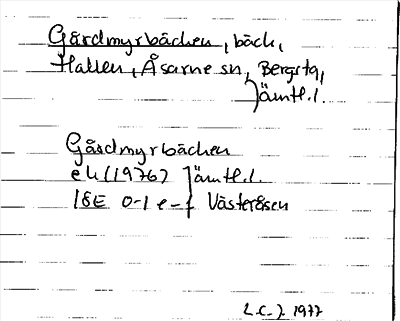 Gårdmyrbäcken, bäck,
Hallen, Åsarne sn, Bergs tg,
Jämtl. l.
Gårdmyrbäcken
ek (1976) Jämtl. l.
18E 0-1 e-f Västeråsen
L.C.J. 1977